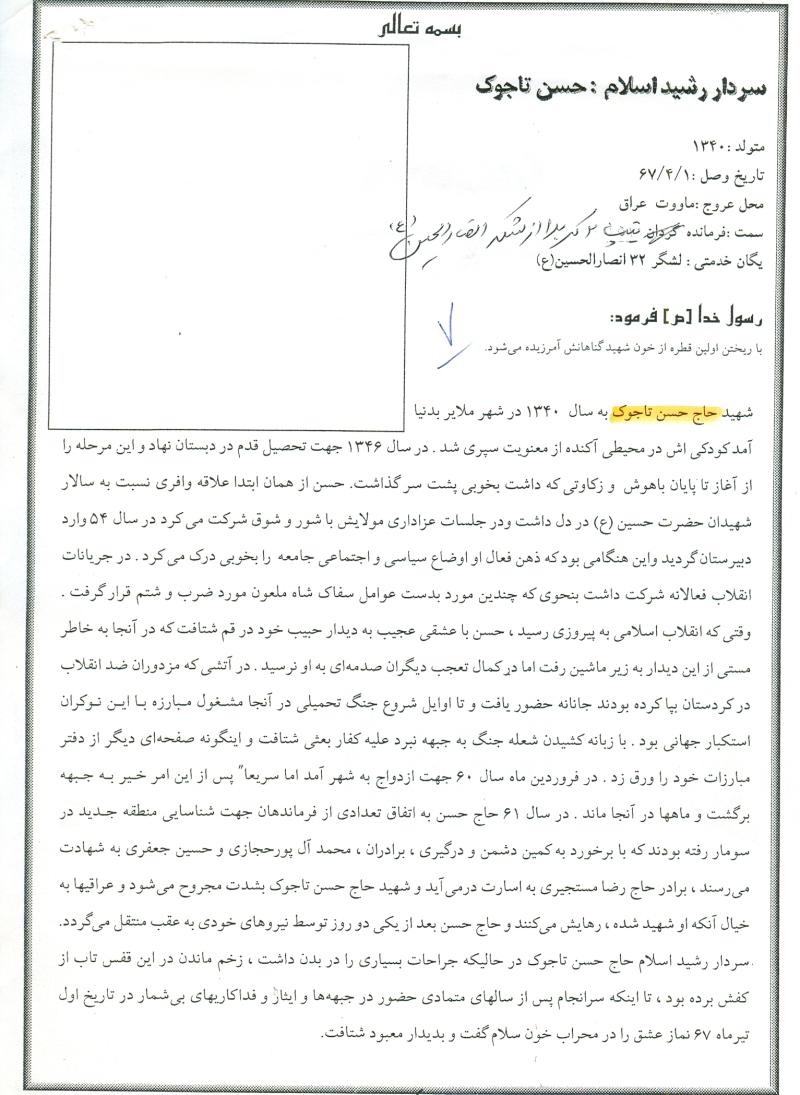 بسمه تعالی
سردار رشید اسلام : حسن تاجوک
متولد : ۱۳۴۰
تاریخ وصل : ۶۷/۴/۱
محل عروج :ماووت عراق
سمت :فرمانده گردان تیپ ۲ کربلا از لشکر انصارالحسین (ع)
یگان خدمتی : لشگر ۳۲ انصارالحسین(ع)
رسول خدا [ص] فرمود:
با ریختن اولین قطره از خون شهید گناهانش آمرزیده می‌شود.
شهید حاج حسن تاجوک به سال ۱۳۴۰ در شهر ملایر بدنیا
آمد کودکی اش در محیطی آکنده از معنویت سپری شد . در سال ۱۳۴۶ جهت تحصیل قدم در دبستان نهاد و این مرحله را
از آغاز تا پایان باهوش و زکاوتی که داشت بخوبی پشت سر گذاشت. حسن از همان ابتدا علاقه وافری نسبت به سالار
شهیدان حضرت حسین (ع) در دل داشت ودر جلسات عزاداری مولایش با شور و شوق شرکت می کرد در سال ۵۴ وارد
دبیرستان گردید واین هنگامی بود که ذهن فعال او اوضاع سیاسی و اجتماعی جامعه را بخوبی درک می کرد . در جریانات
انقلاب فعالانه شرکت داشت بنحوی که چندین مورد بدست عوامل سفاک شاه ملعون مورد ضرب و شتم قرار گرفت .
وقتی که انقلاب اسلامی به پیروزی رسید ، حسن با عشقی عجیب به دیدار حبیب خود در قم شتافت که در آنجا به خاطر
مستی از این دیدار به زیر ماشین رفت اما در کمال تعجب دیگران صدمه‌ای به او نرسید . در آتشی که مزدوران ضد انقلاب
در کردستان بپا کرده بودند جانانه حضور یافت و تا اوایل شروع جنگ تحمیلی در آنجا مشغول مبارزه با این نوکران
استکبار جهانی بود . با زبانه کشیدن شعله جنگ به جبهه نبرد علیه کفار بعثی شتافت و اینگونه صفحه‌ای دیگر از دفتر
مبارزات خود را ورق زد . در فروردین ماه سال ۶۰ جهت ازدواج به شهر آمد اما سریعا" پس از این امر خیر به جبهه
برگشت و ماهها در آنجا ماند . در سال ۶۱ حاج حسن به اتفاق تعدادی از فرماندهان جهت شناسایی منطقه جدید در
سومار رفته بودند که با برخورد به کمین دشمن و درگیری ، برادران ، محمد آل پورحجازی و حسین جعفری به شهادت
می‌رسند ، برادر حاج رضا مستجیری به اسارت درمی‌آید و شهید حاج حسن تاجوک بشدت مجروح می‌شود و عراقیها به
خیال آنکه او شهید شده ، رهایش می‌کنند و حاج حسن بعد از یکی دو روز توسط نیروهای خودی به عقب منتقل می‌گردد.
سردار رشید اسلام حاج حسن تاجوک در حالیکه جراحات بسیاری را در بدن داشت ، زخم ماندن در این قفس تاب از
کفش برده بود ، تا اینکه سرانجام پس از سالهای متمادی حضور در جبهه‌ها و ایثار و فداکاریهای بی‌شمار در تاریخ اول
تیرماه ۶۷ نماز عشق را در محراب خون سلام گفت و بدیدار معبود شتافت.